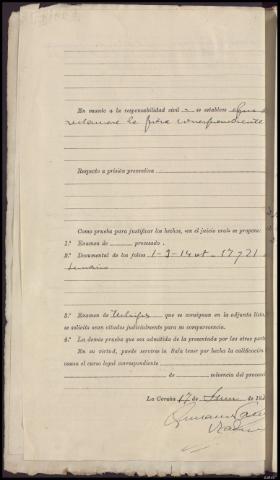 En cuanto a la responsabilidad civil se establece
reclamare la fuera correspondiente
Respecto a prisión preventiva
Como prueba para justificar los hechos, en el juicio oral se propone:
1.º Examen de procesado.
2.º Documental de los folios 1-3-14 vt. 17 y 21
sumario
3.º Examen de testigos que se consignan en la adjunta lista
se solicita sean citados judicialmente para su comparecencia.
4.º La demás prueba que sea admitida de la presentada por las otras partes
En su virtud, puede servirse la Sala tener por hecha la calificación
como el curso legal correspondiente
de de referencia del procesado
La Coruña 17 de de 194